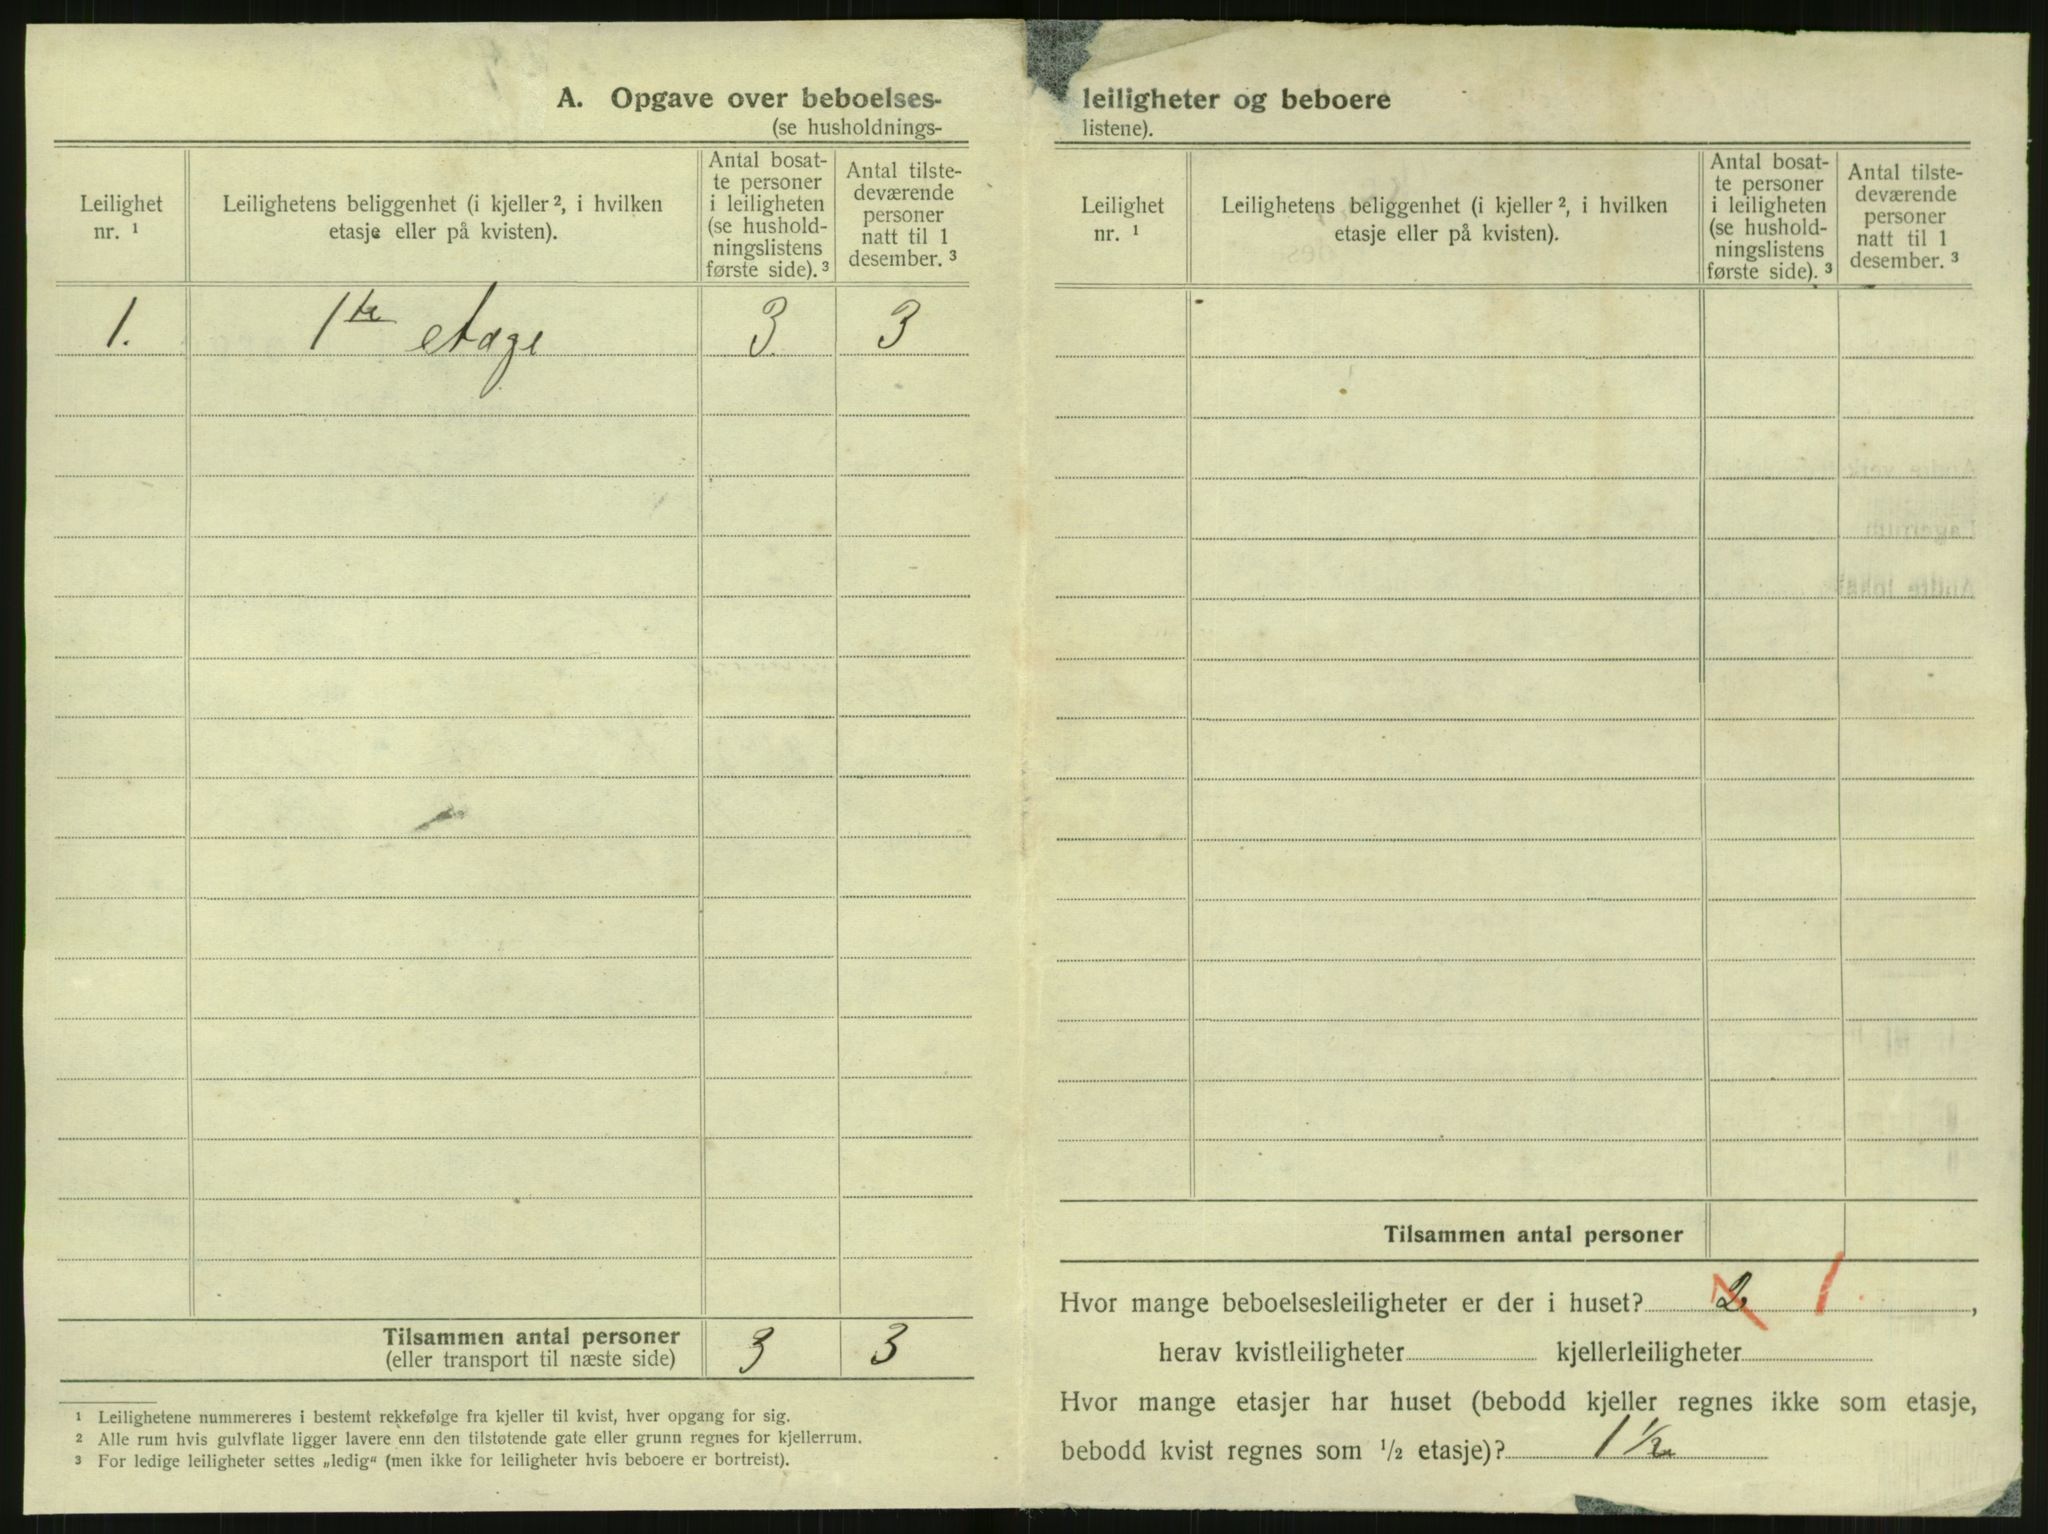 A. Opgave over beboelses-
(se husholdnings-
Leilighet nr. 1
Leilighetens beliggenhet (i kjeller 2, i hvilken
etasje eller på kvisten).
Antal bosat-
te personer
i leiligheten
(se hushold-
ningslistens
første side). 3
Antal tilste-
deværende
personer
natt til 1
desember. 3
1. 1ste etage 3 3
Tilsammen antal personer 3 3
(eller transport til næste side)
1 Leilighetene nummereres i bestemt rekkefølge fra kjeller til kvist, hver opgang for sig.
2 Alle rum hvis gulvflate ligger lavere enn den tilstøtende gate eller grunn regnes for kjellerrum.
3 For ledige leiligheter settes „ledig“ (men ikke for leiligheter hvis beboere er bortreist).
leiligheter og beboere
listene).
Leilighet nr. 1
Leilighetens beliggenhet (i kjeller 2, i hvilken
etasje eller på kvisten).
Antal bosat-
te personer
i leiligheten
(se hushold-
ningslistens
første side). 3
Antal tilste-
deværende
personer
natt til 1
desember. 3
Tilsammen antal personer
Hvor mange beboelsesleiligheter er der i huset? 2 1,
herav kvistleiligheter kjellerleiligheter
Hvor mange etasjer har huset (bebodd kjeller regnes ikke som etasje,
bebodd kvist regnes som 1/2 etasje)? 1 1/2